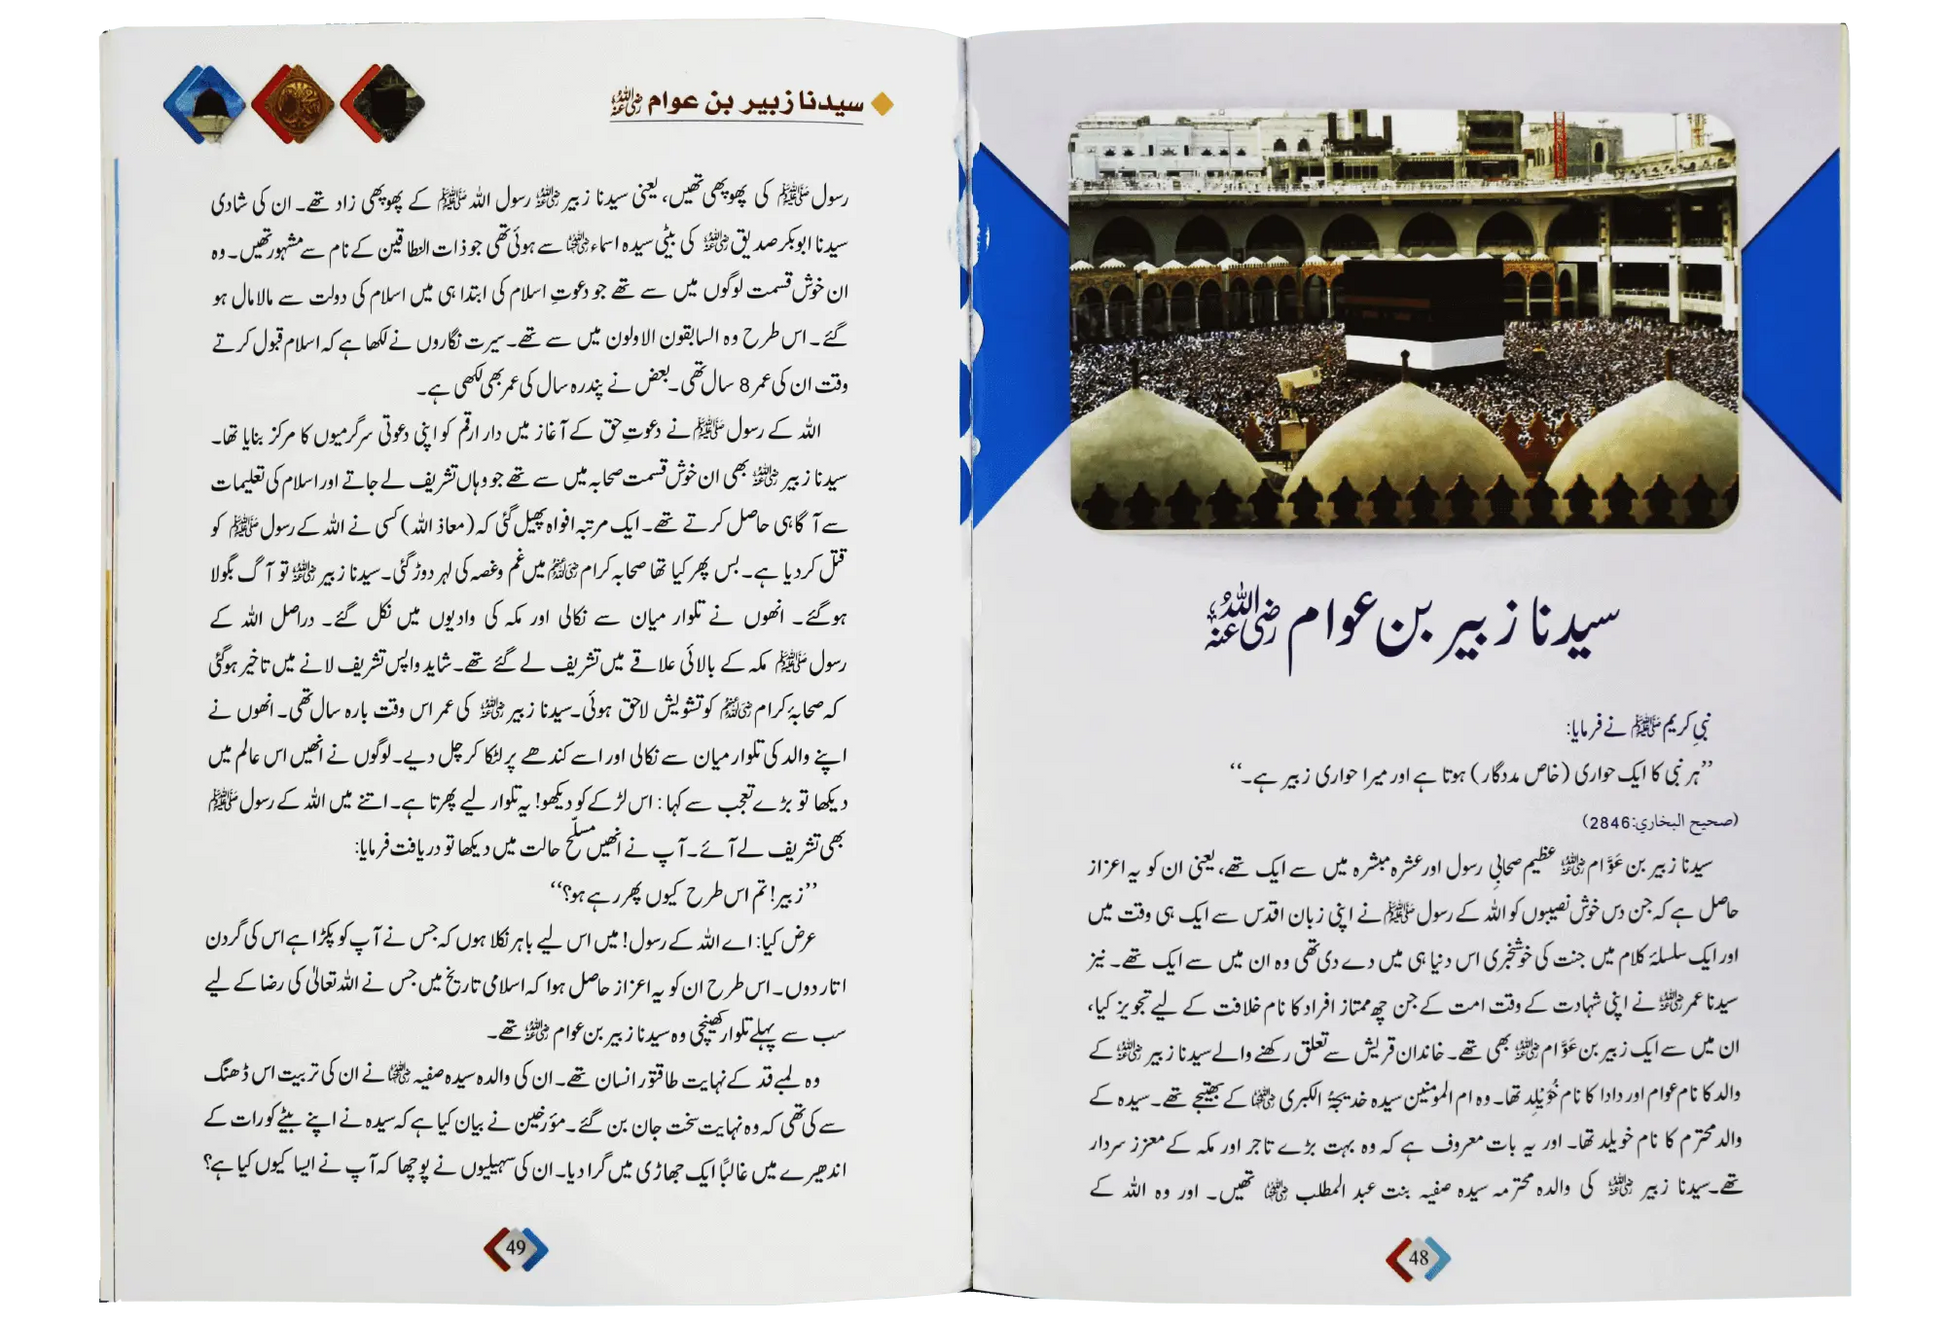 سیدنا زبیر بن عوام رضی اللہ عنہ
نبیِ کریم ﷺ نے فرمایا:
”ہر نبی کا ایک حواری (خاص مددگار) ہوتا ہے اور میرا حواری زبیر ہے۔“
(صحيح البخاري:2846)
سیدنا زبیر بن عَوَّام رضی اللہ عنہ عظیم صحابیِ رسول اور عشرہ مبشرہ میں سے ایک تھے، یعنی ان کو یہ اعزاز
حاصل ہے کہ جن دس خوش نصیبوں کو اللہ کے رسول ﷺ نے اپنی زبان اقدس سے ایک ہی وقت میں
اور ایک سلسلۂ کلام میں جنت کی خوشخبری اس دنیا ہی میں دے دی تھی وہ ان میں سے ایک تھے۔ نیز
سیدنا عمر رضی اللہ عنہ نے اپنی شہادت کے وقت امت کے جن چھ ممتاز افراد کا نام خلافت کے لیے تجویز کیا،
ان میں سے ایک زبیر بن عَوَّام رضی اللہ عنہ بھی تھے۔ خاندان قریش سے تعلق رکھنے والے سیدنا زبیر رضی اللہ عنہ کے
والد کا نام عوام اور دادا کا نام خُوَیلِد تھا۔ وہ ام المومنین سیدہ خدیجۃ الکبری رضی اللہ عنہا کے بھتیجے تھے۔ سیدہ کے
والد محترم کا نام خویلد تھا۔ اور یہ بات معروف ہے کہ وہ بہت بڑے تاجر اور مکہ کے معزز سردار
تھے۔ سیدنا زبیر رضی اللہ عنہ کی والدہ محترمہ سیدہ صفیہ بنت عبد المطلب رضی اللہ عنہا تھیں۔ اور وہ اللہ کے
48
سیدنا زبیر بن عوام رضی اللہ عنہ
رسول ﷺ کی پھوپھی تھیں، یعنی سیدنا زبیر رضی اللہ عنہ رسول اللہ ﷺ کے پھوپھی زاد تھے۔ ان کی شادی
سیدنا ابوبکر صدیق رضی اللہ عنہ کی بیٹی سیدہ اسماء رضی اللہ عنہا سے ہوئی تھی جو ذات النطاقین کے نام سے مشہور تھیں۔ وہ
ان خوش قسمت لوگوں میں سے تھے جو دعوتِ اسلام کی ابتدا ہی میں اسلام کی دولت سے مالا مال ہو
گئے۔ اس طرح وہ السابقون الاولون میں سے تھے۔ سیرت نگاروں نے لکھا ہے کہ اسلام قبول کرتے
وقت ان کی عمر 8 سال تھی۔ بعض نے پندرہ سال کی عمر بھی لکھی ہے۔
اللہ کے رسول ﷺ نے دعوتِ حق کے آغاز میں دار ارقم کو اپنی دعوتی سرگرمیوں کا مرکز بنایا تھا۔
سیدنا زبیر رضی اللہ عنہ بھی ان خوش قسمت صحابہ میں سے تھے جو وہاں تشریف لے جاتے اور اسلام کی تعلیمات
سے آگاہی حاصل کرتے تھے۔ ایک مرتبہ افواہ پھیل گئی کہ (معاذ اللہ) کسی نے اللہ کے رسول ﷺ کو
قتل کر دیا ہے۔ بس پھر کیا تھا صحابہ کرام رضی اللہ عنہم میں غم وغصہ کی لہر دوڑ گئی۔ سیدنا زبیر رضی اللہ عنہ تو آگ بگولا
ہو گئے۔ انھوں نے تلوار میان سے نکالی اور مکہ کی وادیوں میں نکل گئے۔ دراصل اللہ کے
رسول ﷺ مکہ کے بالائی علاقے میں تشریف لے گئے تھے۔ شاید واپس تشریف لانے میں تاخیر ہو گئی
کہ صحابۂ کرام رضی اللہ عنہم کو تشویش لاحق ہوئی۔ سیدنا زبیر رضی اللہ عنہ کی عمر اس وقت بارہ سال تھی۔ انھوں نے
اپنے والد کی تلوار میان سے نکالی اور اسے کندھے پر لٹکا کر چل دیے۔ لوگوں نے انھیں اس عالم میں
دیکھا تو بڑے تعجب سے کہا: اس لڑکے کو دیکھو! یہ تلوار لیے پھرتا ہے۔ اتنے میں اللہ کے رسول ﷺ
بھی تشریف لے آئے۔ آپ نے انھیں مسلّح حالت میں دیکھا تو دریافت فرمایا:
”زبیر! تم اس طرح کیوں پھر رہے ہو؟“
عرض کیا: اے اللہ کے رسول! میں اس لیے باہر نکلا ہوں کہ جس نے آپ کو پکڑا ہے اس کی گردن
اتار دوں۔ اس طرح ان کو یہ اعزاز حاصل ہوا کہ اسلامی تاریخ میں جس نے اللہ تعالیٰ کی رضا کے لیے
سب سے پہلے تلوار کھینچی وہ سیدنا زبیر بن عوام رضی اللہ عنہ تھے۔
وہ لمبے قد کے نہایت طاقتور انسان تھے۔ ان کی والدہ سیدہ صفیہ رضی اللہ عنہا نے ان کی تربیت اس ڈھنگ
سے کی تھی کہ وہ نہایت سخت جان بن گئے۔ مؤرخین نے بیان کیا ہے کہ سیدہ نے اپنے بیٹے کو رات کے
اندھیرے میں غالباً ایک جھاڑی میں گرا دیا۔ ان کی سہیلیوں نے پوچھا کہ آپ نے ایسا کیوں کیا ہے؟
49